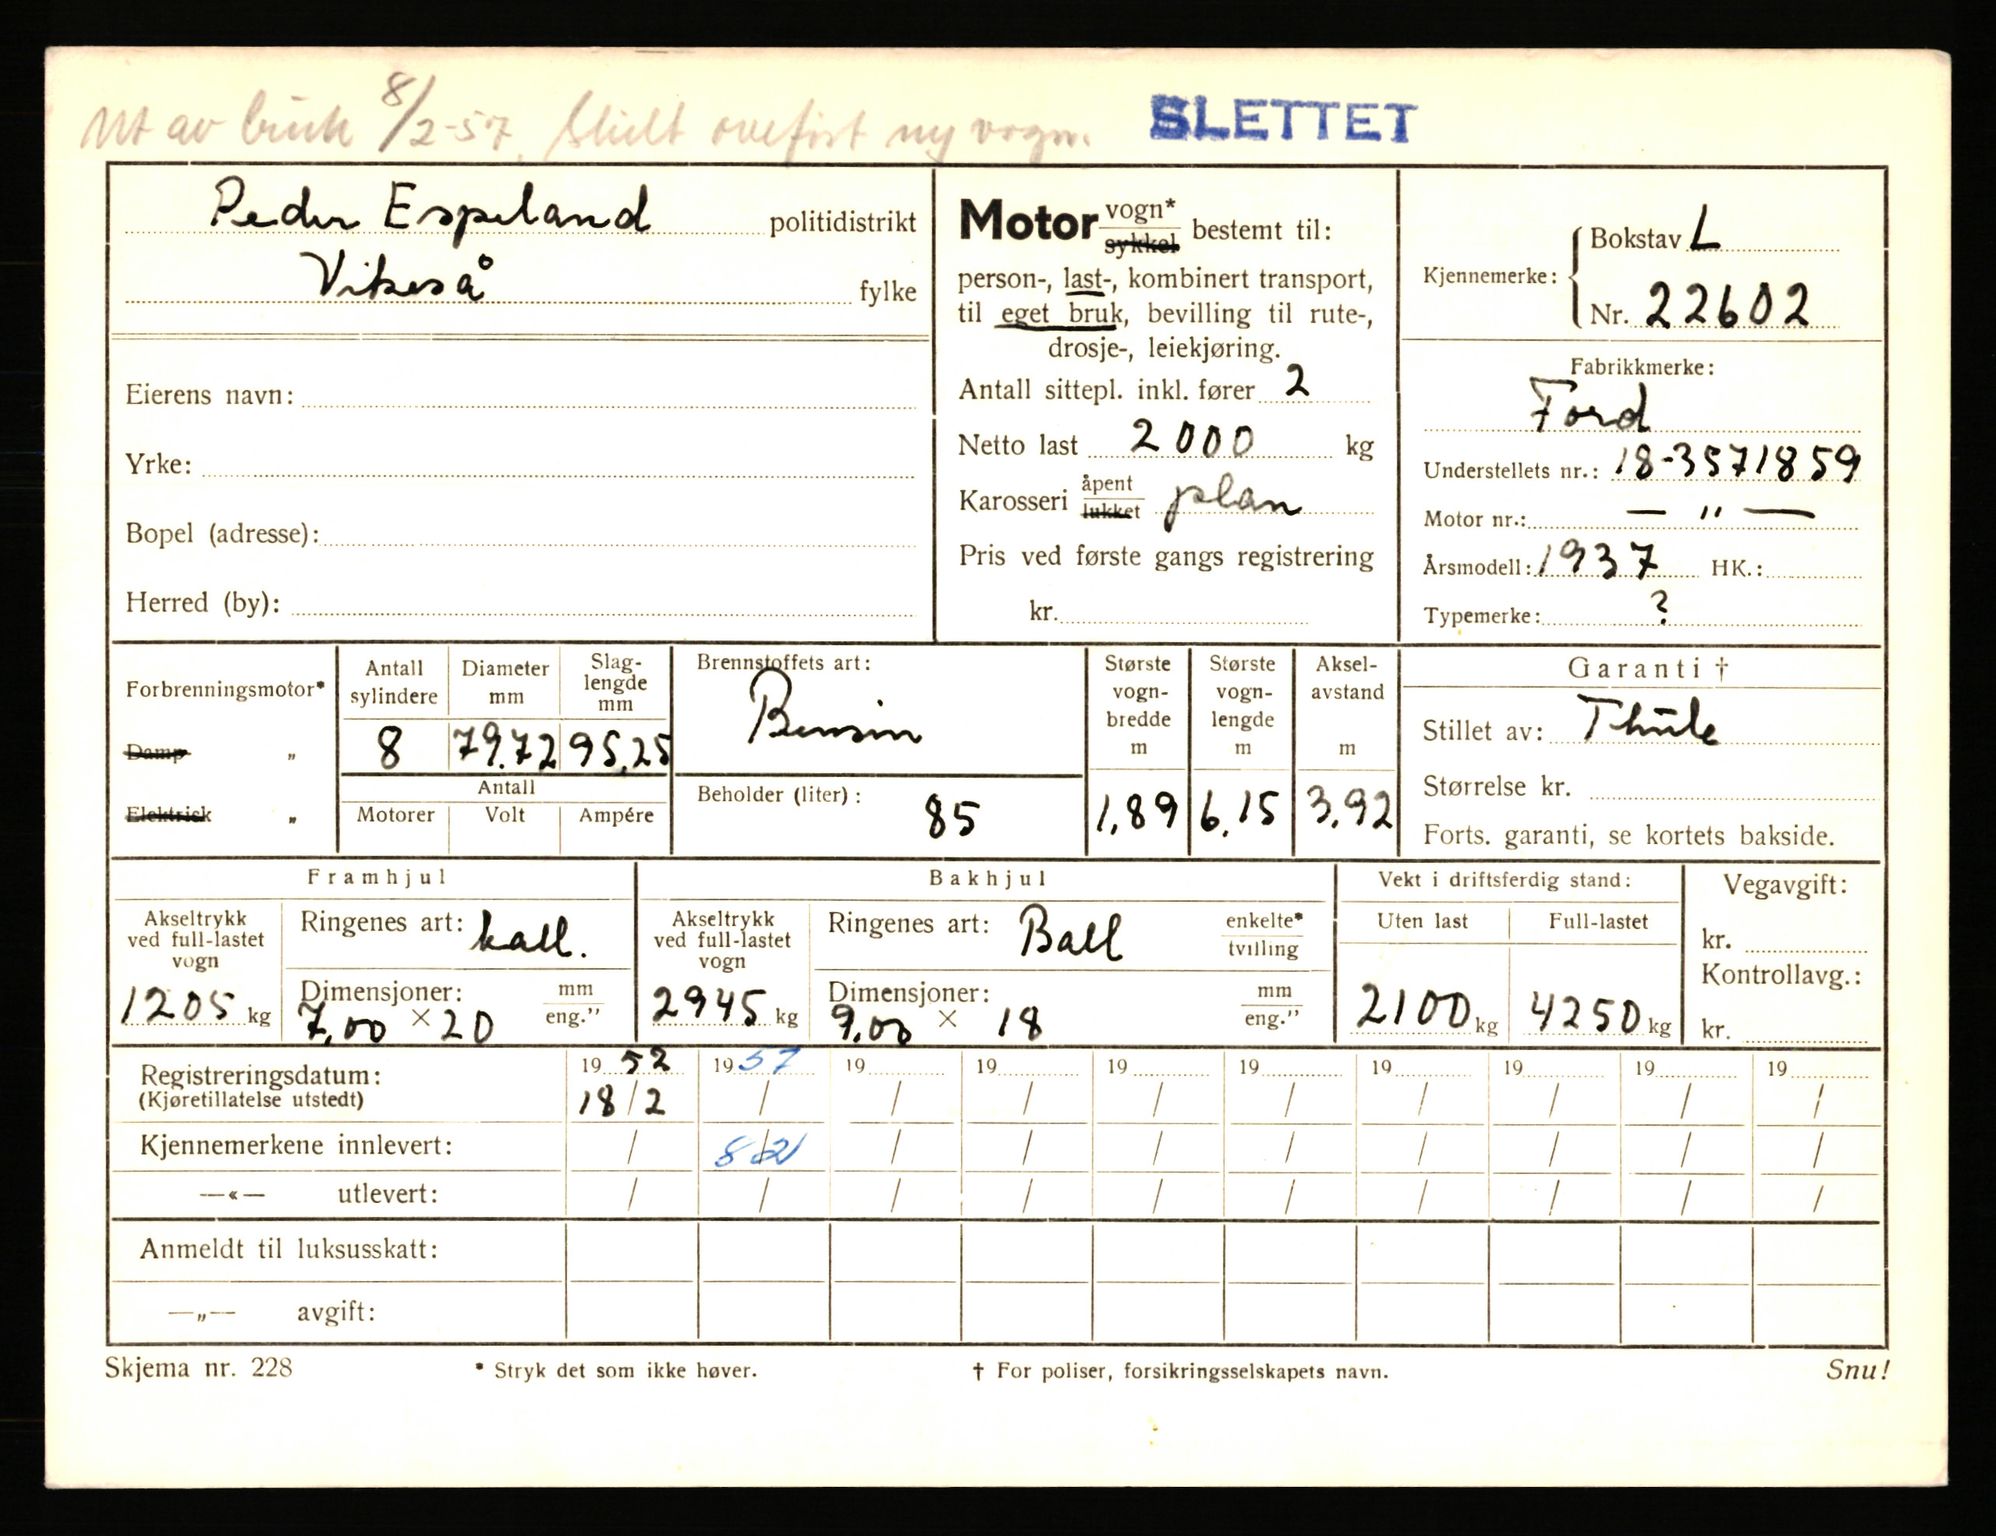 Ut av bruk 8/2-57. Skilt overført ny vogn. SLETTET
Peder Espeland politidistrikt
Vikeså fylke
Eierens navn:
Yrke:
Bopel (adresse):
Herred (by):
Motor vogn* sykkel bestemt til:
person-, last-, kombinert transport,
til eget bruk, bevilling til rute-,
drosje-, leiekjøring.
Antall sittepl. inkl. fører 2
Netto last 2000 kg
Karosseri åpent lukket plan
Pris ved første gangs registrering
kr.
Kjennemerke: Bokstav L
Nr. 22602
Fabrikkmerke:
Ford
Understellets nr.: 18-3571859
Motor nr.: — " —
Årsmodell: 1937 HK.:
Typemerke: ?
Forbrenningsmotor*
Damp "
Elektrisk "
Antall sylindere
8
Diameter mm
79.72
Slag-
lengde
mm
95,25
Antall
Motorer Volt Ampére
Brennstoffets art:
Bensin
Beholder (liter):
85
Største
vogn-
bredde
m
1,89
Største
vogn-
lengde
m
6,15
Aksel-
avstand
m
3,92
Garanti †
Stillet av: Thule
Størrelse kr.
Forts. garanti, se kortets bakside.
Framhjul
Akseltrykk
ved full-lastet
vogn
1205 kg
Ringenes art: ball.
Dimensjoner: mm eng."
7,00 × 20
Bakhjul
Akseltrykk
ved full-lastet
vogn
2945 kg
Ringenes art: Ball enkelte* tvilling
Dimensjoner: mm eng."
9.00 × 18
Vekt i driftsferdig stand:
Uten last Full-lastet
2100 kg 4250 kg
Vegavgift:
kr.
Kontrollavg.:
kr.
Registreringsdatum: 1952 1957 19 19 19 19 19 19 19 19
(Kjøretillatelse utstedt) 18/2 / / / / / / / / /
Kjennemerkene innlevert: / 8/2 / / / / / / / /
—«— utlevert: / / / / / / / / / /
Anmeldt til luksusskatt:
—„— avgift:
Skjema nr. 228 * Stryk det som ikke høver. † For poliser, forsikringsselskapets navn. Snu!